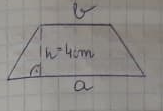 b
h=4cm
a